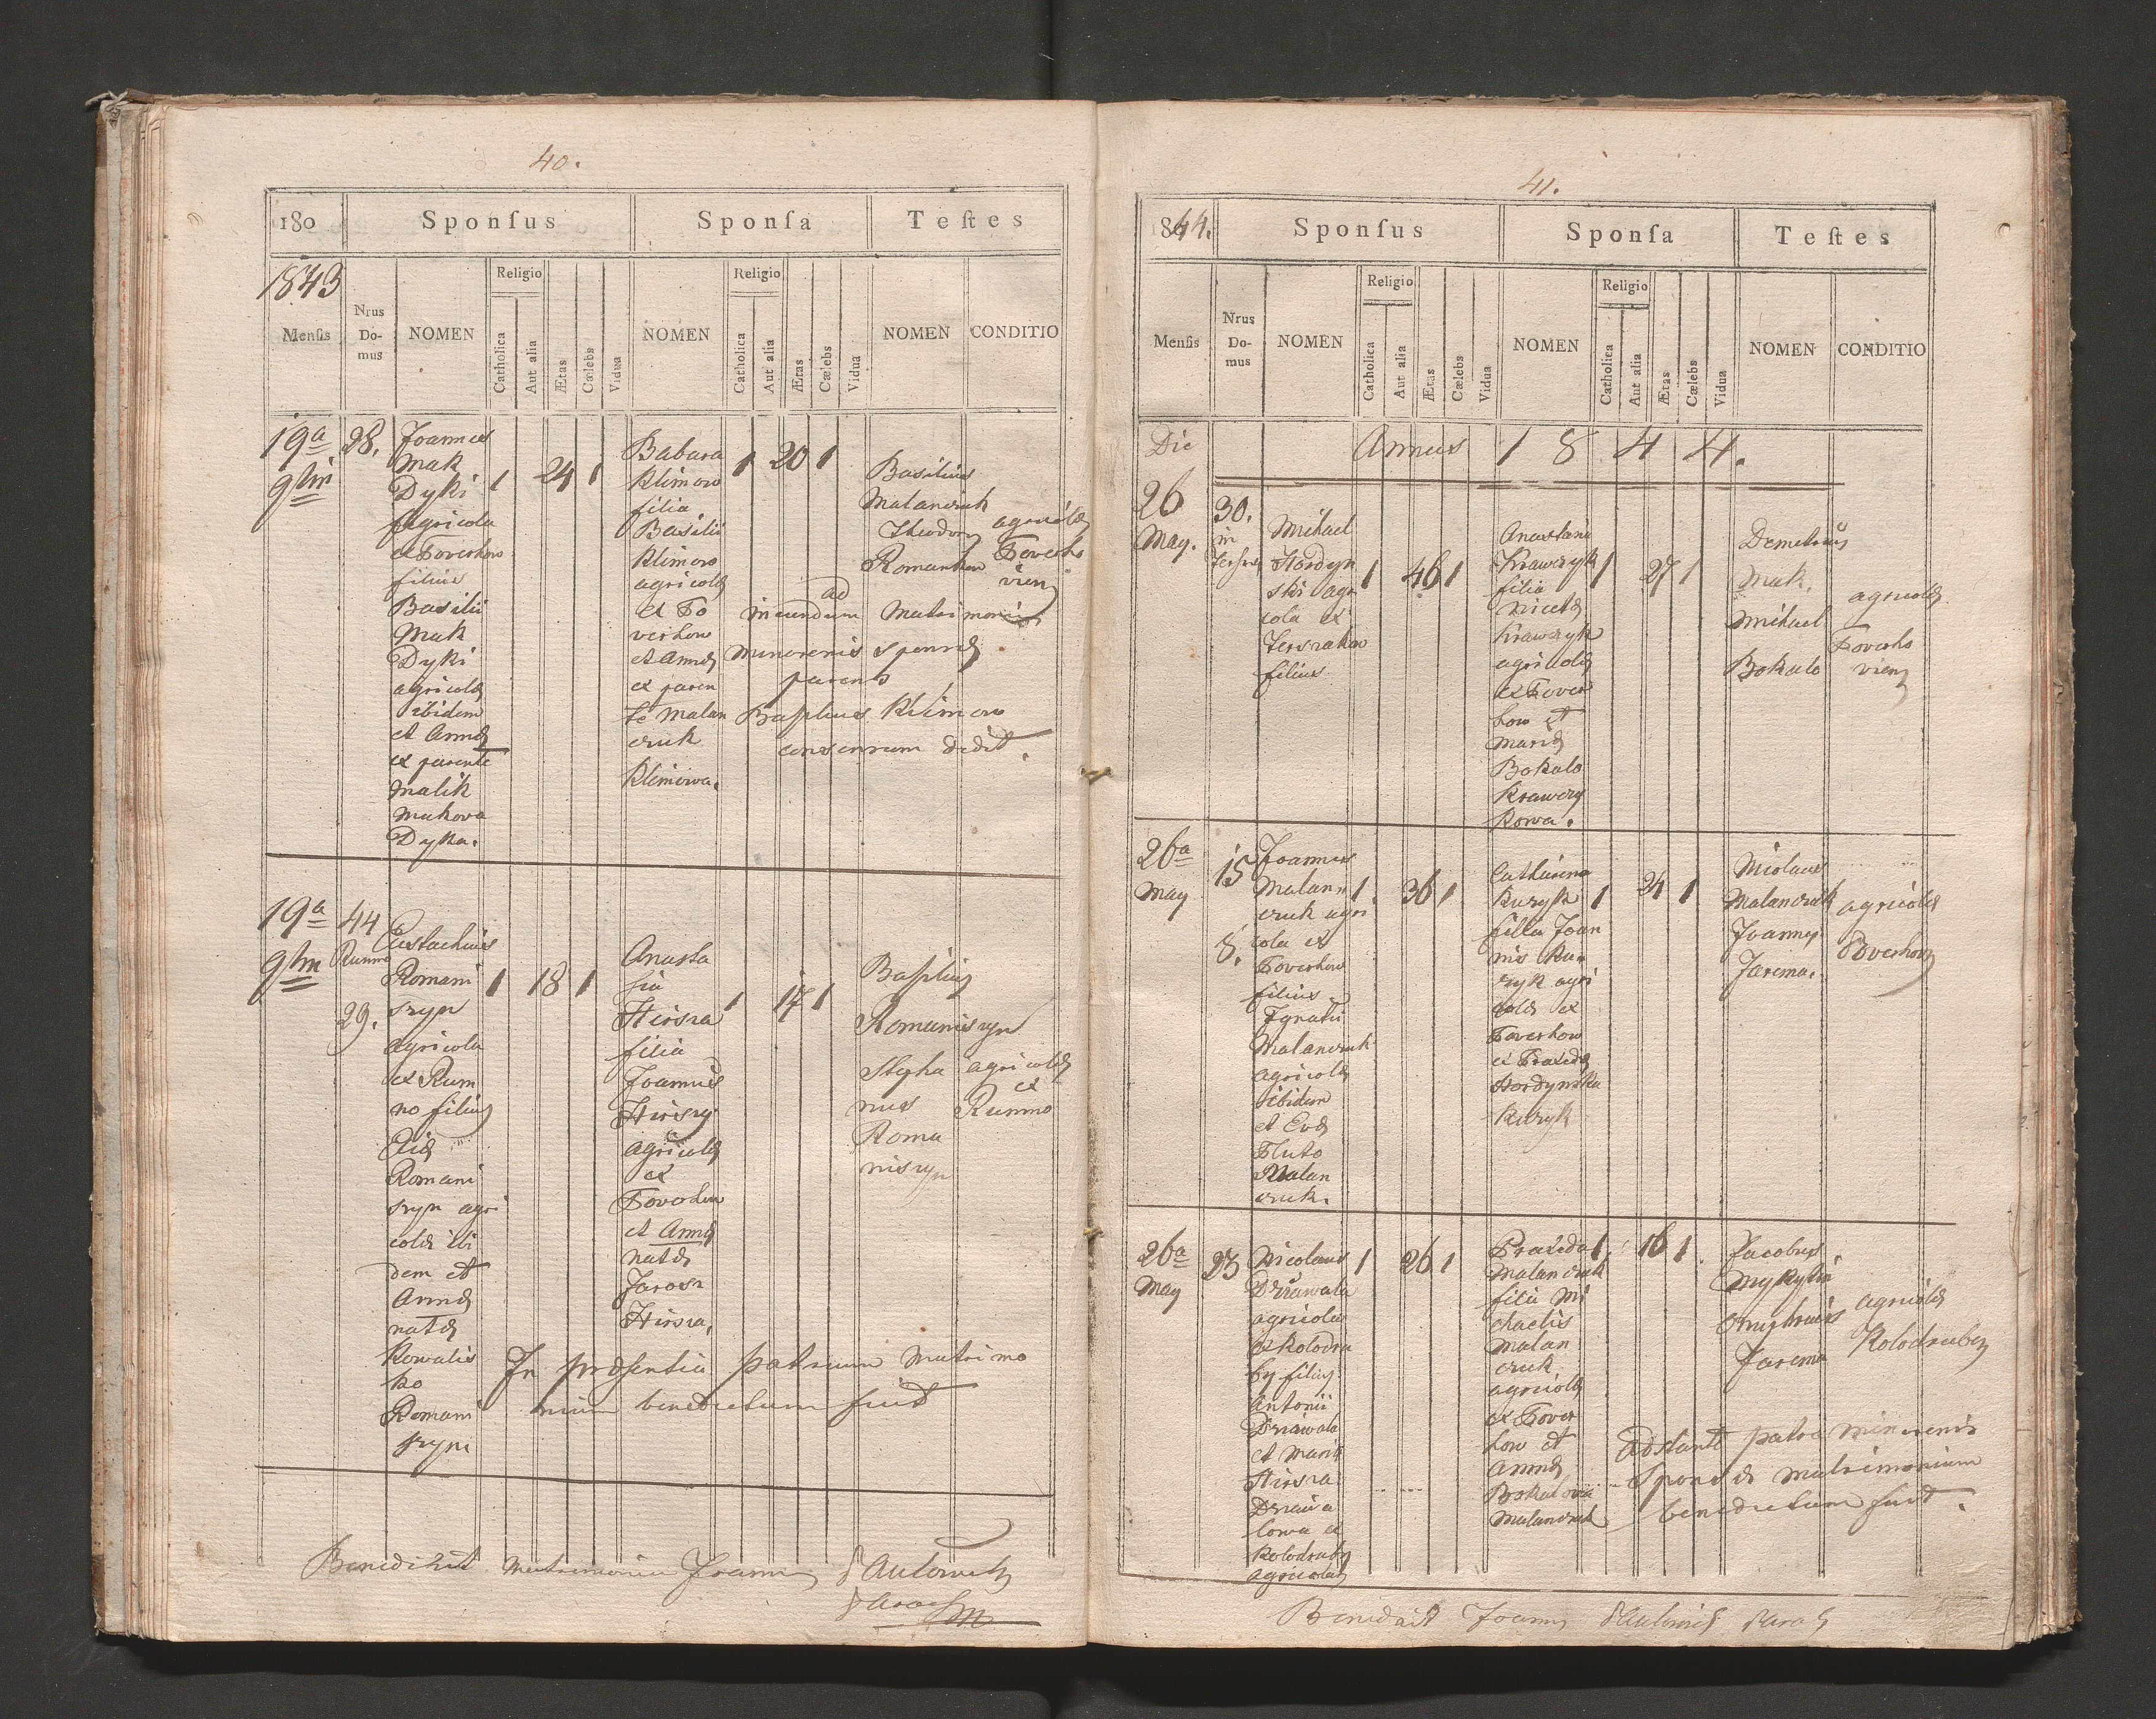 40.
180 Sponſus Sponſa Teſtes
1843
Menſis Nrus Do-mus NOMEN Religio Catholica Aut alia Ætas Cælebs Vidua NOMEN Religio Catholica Aut alia Ætas Cælebs Vidua NOMEN CONDITIO
19a
9bris
28.
Joannes
Mak
Dyki
agricola
ex Powerhow
filius
Basilii
Mak
Dyki
agricolæ
ibidem
et Annæ
ex parente
Malik
Makova
Dyka.
1 24 1
Babara
Klimow
filia
Basilii
Klimow
agricolæ
ex Po
verhow
et Annæ
ex paren
te Malan
czuk
Klimowa.
1 20 1
Basilius
Malanczuk
Theodorus
Romanków
agricolæ
Poverho
vien
ad
ineundum Matrimonium
minorenis sponsæ
parens
Basilius Klimow
consensum dedit.
19a
9bm
44
Rumno
29.
Eustachius
Romani
szyn
agricola
ex Rum
no filius
Eliæ
Romani
szyn agri
colæ ibi
dem et
Annæ
natæ
Kowalis
ko
Romani
szyn
1 18 1
Anasta
sia
Hirsza
filia
Joannis
Hirszy
agricolæ
ex
Poverhow
et Annæ
natæ
Jarosz
Hirsza.
1 17 1
Basilius
Romaniszyn
Stepha
nus
Roma
niszyn
agricolæ
ex
Rumno
In præsentia patrum Matrimo
nium benedictum fuit
Benedixit Matrimonia Joannes
41.
1844. Sponſus Sponſa Teſtes
Menſis Nrus Do-mus NOMEN Religio Catholica Aut alia Ætas Cælebs Vidua NOMEN Religio Catholica Aut alia Ætas Cælebs Vidua NOMEN CONDITIO
Die Annus 1 8 4 4.
26
May.
30.
in
Mihael
Hordyn
ski agri
cola ex
Terszakow
filius
1 46 1
Anastasia
Krawczyk
filia
Nicetæ
Krawczyk
agricolæ
ex Pover
how et
Mariæ
Bokalo
Krawczy
kowa.
1 27 1
Demetrius
Mak.
Mihael
Bokalo
agricolæ
Poverho
vien
26a
May
15
8.
Joannes
Malan
czuk agri
cola ex
Poverhow
filius
Ignatii
Malanczuk
agricolæ
ibidem
et Evæ
Pluto
Malan
czuk.
1 36 1
Catharina
Kuzyk
filia Joan
nis Ku
zyk agri
colæ ex
Poverhow
et Praxedæ
Hordynska
Kuzyk
1 24 1
Nicolaus
Malanczuk
Joannes
Jarema.
agricolæ
Poverhow
26a
May
23
Nicolaus
Drzawala
agricola
ex Kolodru
by filius
Antonii
Drzawala
et Mariæ
Hirsza
Drzawa
lowa ex
Kolodruby
agricolæ
1 26 1
Praxeda
Malanczuk
filia Mi
chaelis
Malan
czuk
agricolæ
ex Pover
how et
Annæ
Bokalowa
Malanczuk
1 16 1
Jacobus
Mykytin
Jarema
agricolæ
Kolodruben
Adstante patre minorenis
Sponsæ matrimonium
benedictum fuit.
Benedixit Joannes